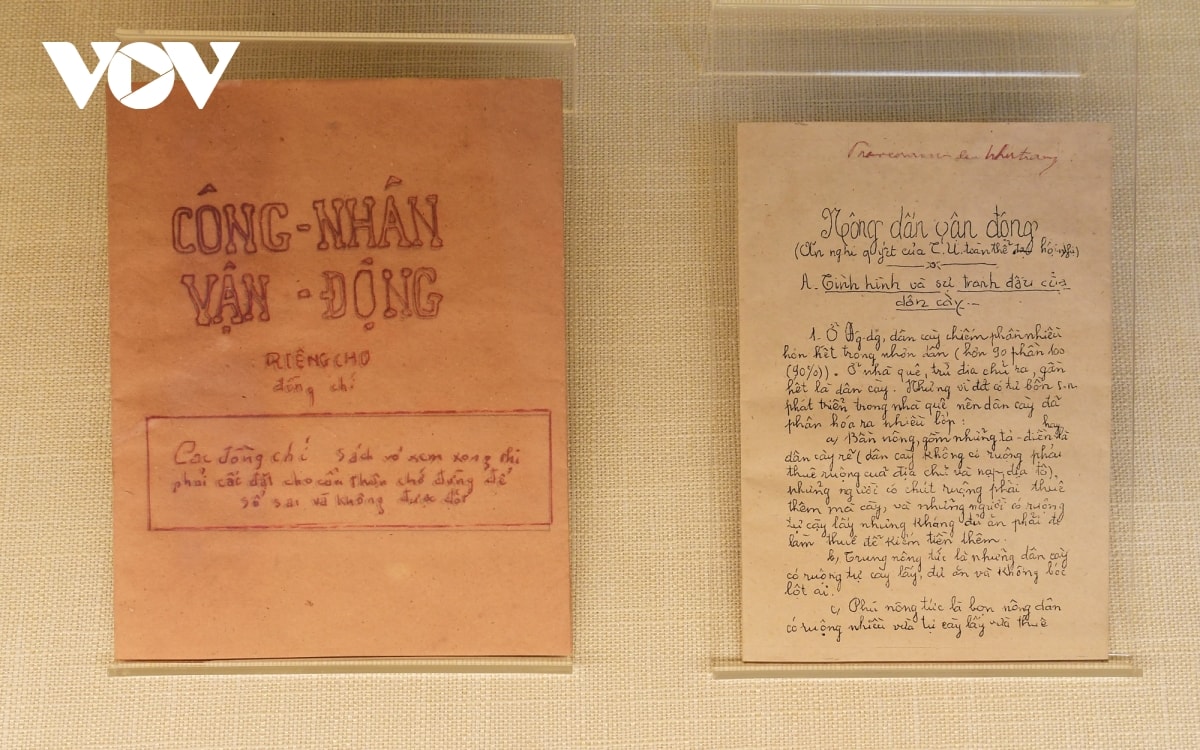 VOV
CÔNG-NHÂN
VẬN-ĐỘNG
RIÊNG CHO
đồng chí
Các đồng chí sách vở xem xong thì
phải cất đặt cho cẩn thận chớ đừng để
sơ sài và không được đốt
Nông dân vận động
(Án nghị quyết của T.U. toàn thể hội nghị)
A- Tình hình và sự tranh đấu của
dân cày.-
1. Ở Đg-dg, dân cày chiếm phần nhiều
hơn hết trong nhơn dân (hơn 90 phần 100
(90%)). Ở nhà quê, trừ địa chủ ra, gần
hết là dân cày. Nhưng vì đã có tư bổn
phát triển trong nhà quê nên dân cày đã
phân hóa ra nhiều lớp:
a) Bần nông, gồm những tá-điền hay
dân cày rẽ (dân cày không có ruộng phải
thuê ruộng của địa chủ và nạp địa tô),
những người có chút ruộng phải thuê
thêm mà cày, và những người có ruộng
tự cày lấy nhưng không đủ ăn phải đi
làm thuê để kiếm tiền thêm.
b, Trung nông tức là những dân cày
có ruộng tự cày lấy, đủ ăn và không bóc
lột ai.
c, Phú nông tức là bọn nông dân
có ruộng nhiều vừa tự cày lấy vừa thuê